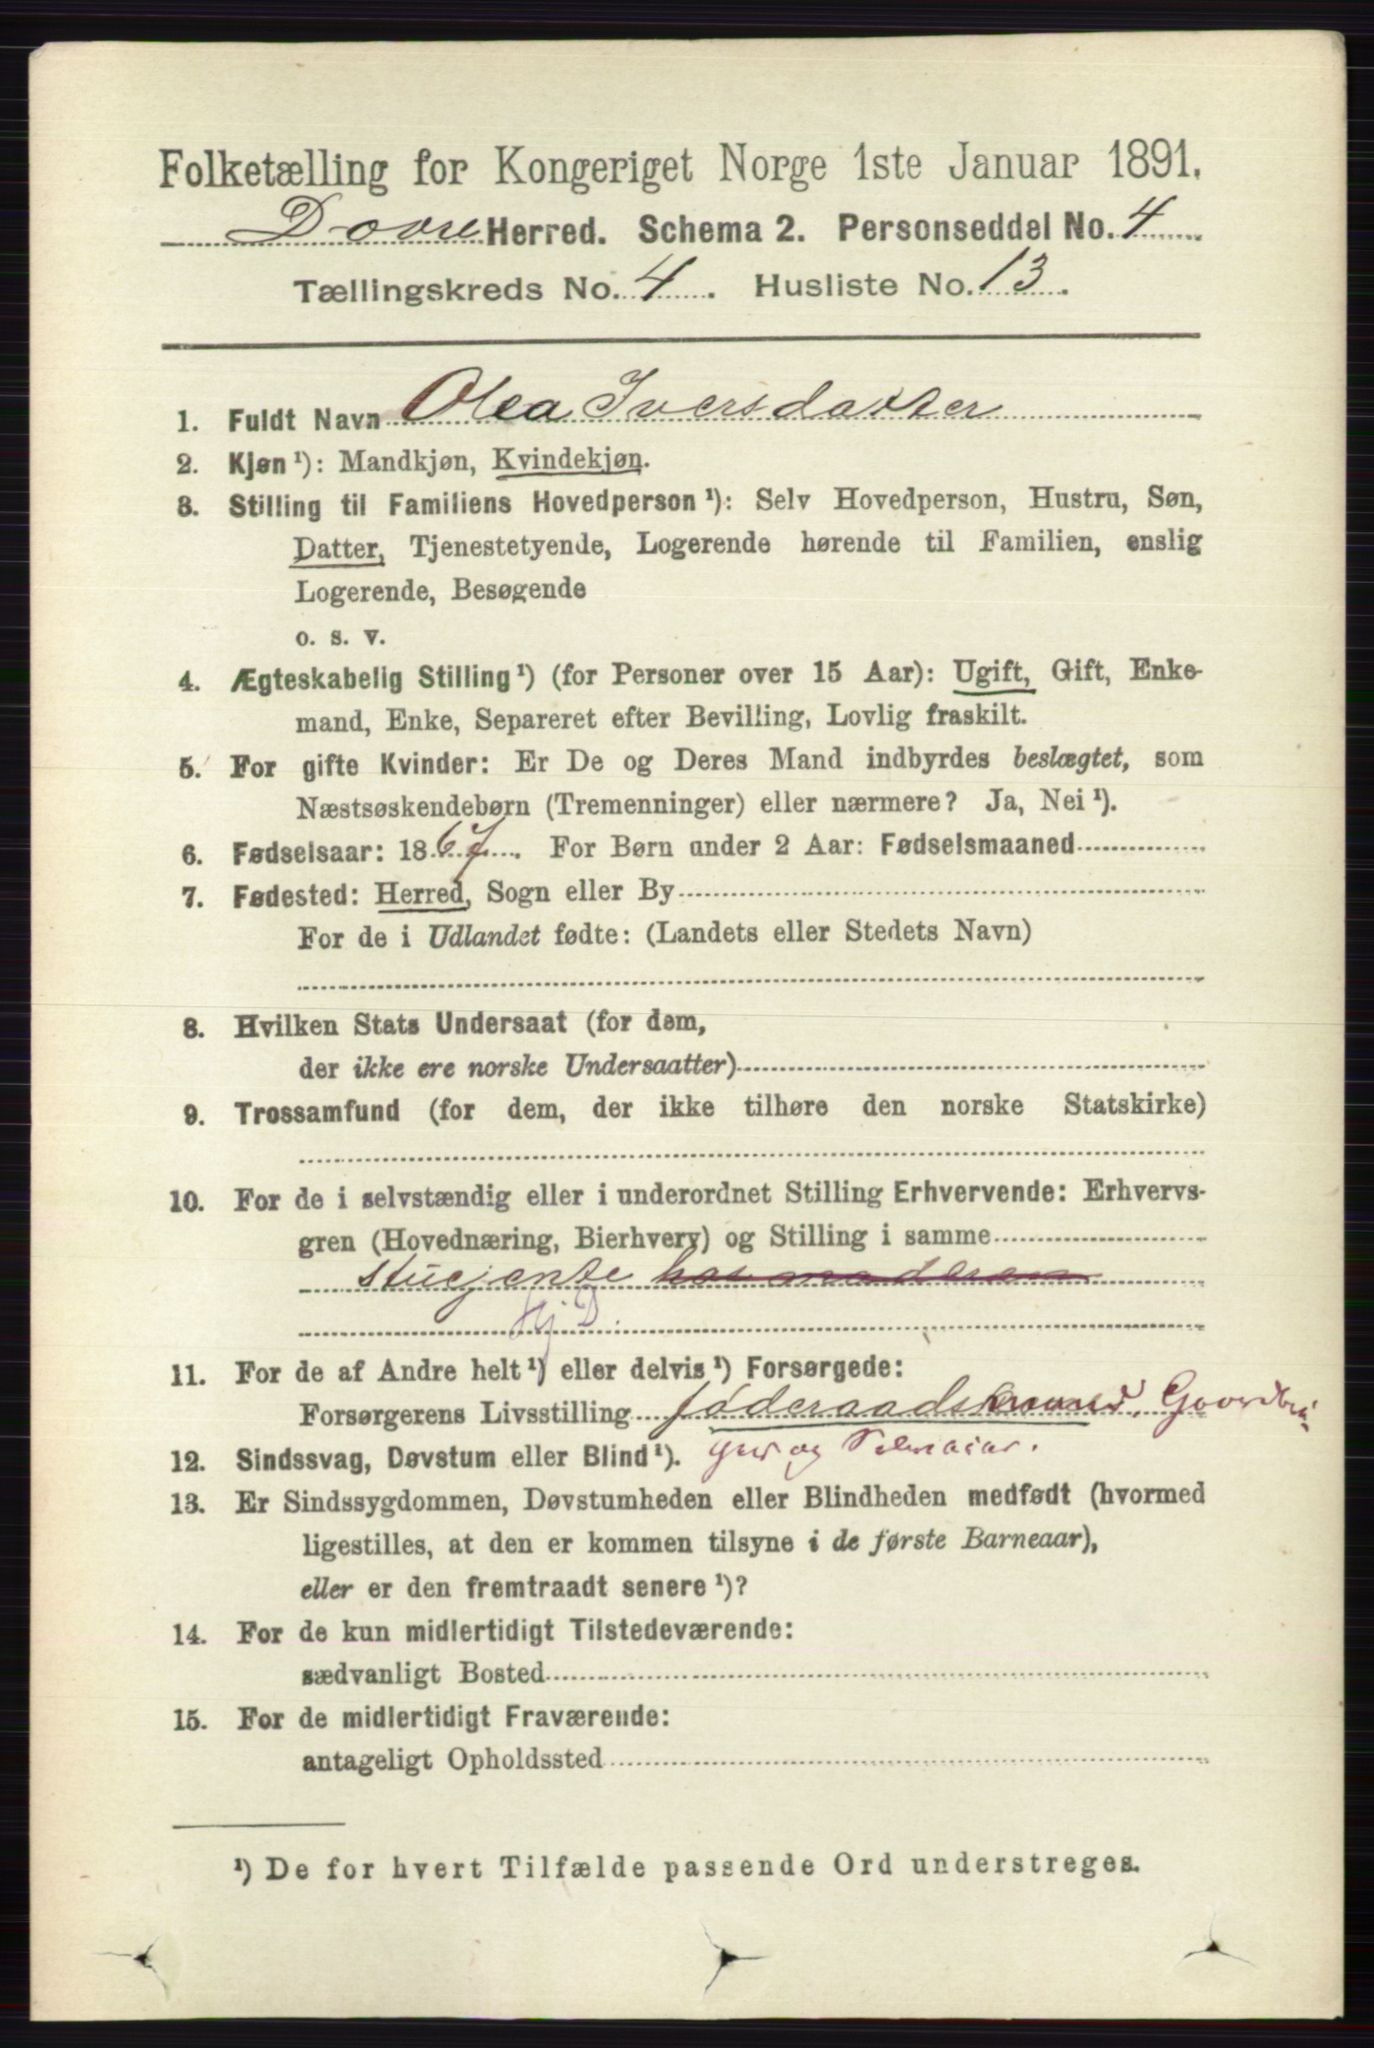 Folketælling for Kongeriget Norge 1ste Januar 1891.
Dovre Herred. Schema 2. Personseddel No. 4
Tællingskreds No. 4. Husliste No. 13.
1. Fuldt Navn Olea Iversdatter
2. Kjøn ¹): Mandkjøn, Kvindekjøn.
3. Stilling til Familiens Hovedperson ¹): Selv Hovedperson, Hustru, Søn,
Datter, Tjenestetyende, Logerende hørende til Familien, enslig
Logerende, Besøgende
o. s. v.
4. Ægteskabelig Stilling ¹) (for Personer over 15 Aar): Ugift, Gift, Enke-
mand, Enke, Separeret efter Bevilling, Lovlig fraskilt.
5. For gifte Kvinder: Er De og Deres Mand indbyrdes beslægtet, som
Næstsøskendebørn (Tremenninger) eller nærmere? Ja, Nei ¹).
6. Fødselsaar: 1867. For Børn under 2 Aar: Fødselsmaaned
7. Fødested: Herred, Sogn eller By
For de i Udlandet fødte: (Landets eller Stedets Navn)
8. Hvilken Stats Undersaat (for dem,
der ikke ere norske Undersaatter)
9. Trossamfund (for dem, der ikke tilhøre den norske Statskirke)
10. For de i selvstændig eller i underordnet Stilling Erhvervende: Erhvervs-
gren (Hovednæring, Bierhverv) og Stilling i samme
stuejente hos moderen
Hj. D.
11. For de af Andre helt ¹) eller delvis ¹) Forsørgede:
Forsørgerens Livsstilling føderaadsmand. Gaardbru-
12. Sindssvag, Døvstum eller Blind ¹). ger og Selveier.
13. Er Sindssygdommen, Døvstumheden eller Blindheden medfødt (hvormed
ligestilles, at den er kommen tilsyne i de første Barneaar),
eller er den fremtraadt senere ¹)?
14. For de kun midlertidigt Tilstedeværende:
sædvanligt Bosted
15. For de midlertidigt Fraværende:
antageligt Opholdssted
¹) De for hvert Tilfælde passende Ord understreges.